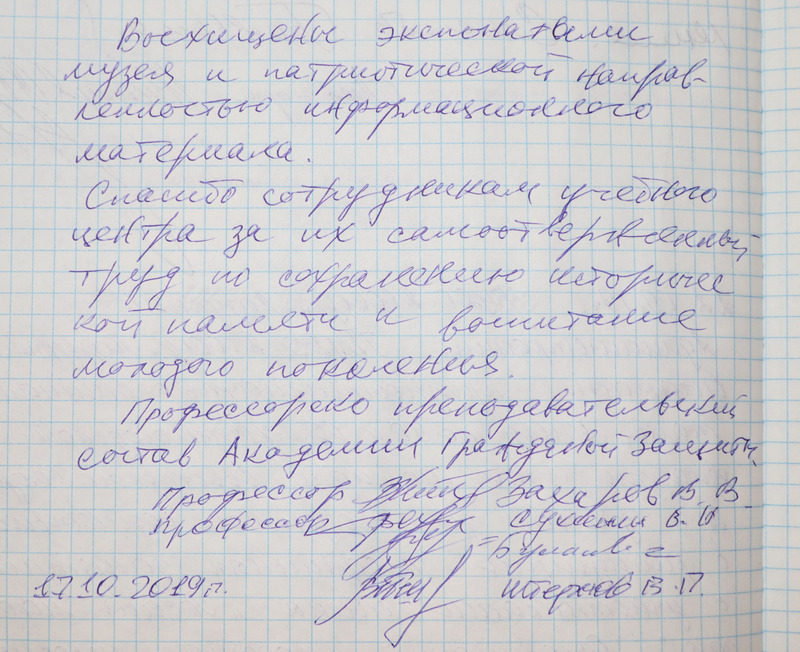 Восхищены экспонатами
музея и патриотической направ-
ленностью информационного
материала.
Спасибо сотрудникам учебного
центра за их самоотверженный
труд по сохранению историчес
кой памяти и воспитание
молодого поколения.
Профессорско преподавательский
состав Академии Гражданской Защиты.
Профессор Захаров В. В.
Профессор В. И
17.10.2019г. В.П.